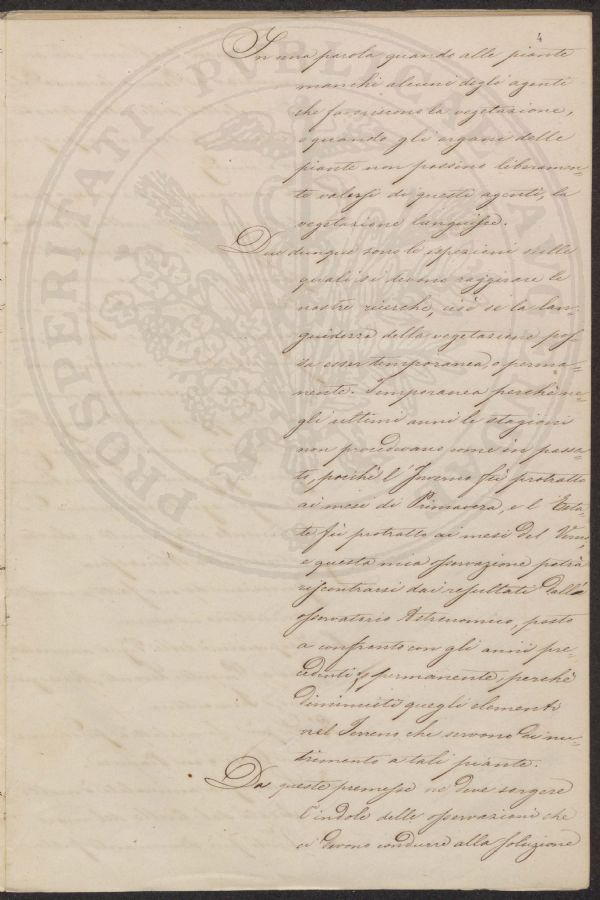 4
In una parola quando alle piante
manchi alcuni degli agenti
che favoriscono la vegetazione,
o quando gli organi delle
piante non possino liberamen-
te valersi di questi agenti, la
vegetazione languisce.
Due dunque sono le ispezioni nelle
quali si devono raggirare le
nostre ricerche, cioè se la lan-
guidezza della vegetazione pos-
sa esser temporanea, o perma-
nente. Temporanea perchè ne-
gli ultimi anni le stagioni
non procedevano come in passa-
to, poichè l'Inverno fù protratto
ai mesi di Primavera, e l'Esta-
te fù protratto ai mesi del Verno,
e questa mia osservazione potrà
riscontrarsi dai resultati dall'
osservatorio Astronomico, posto
a confronto con gli anni pre-
cedenti; permanente perchè
diminuiti quegli elementi
nel Terreno che servono di nu-
trimento a tali piante.
Da queste premesse ne deve sorgere
l'indole delle osservazioni che
ci devono condurre alla soluzione
PROSPERITATI PUBLICAE